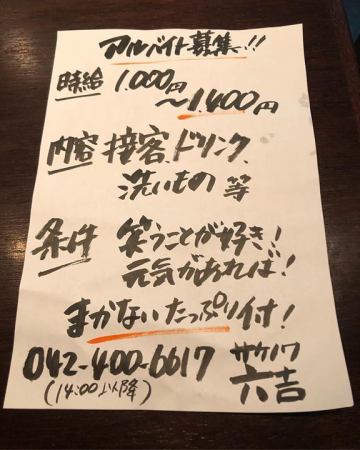 アルバイト募集!!
時給 1.000円
〜1.400円
内容 接客、ドリンク、
洗いもの 等
条件 笑うことが好き!
元気があれば!
まかないたっぷり付!
042-400-6617
(14:00以降)
サケノワ
六吉